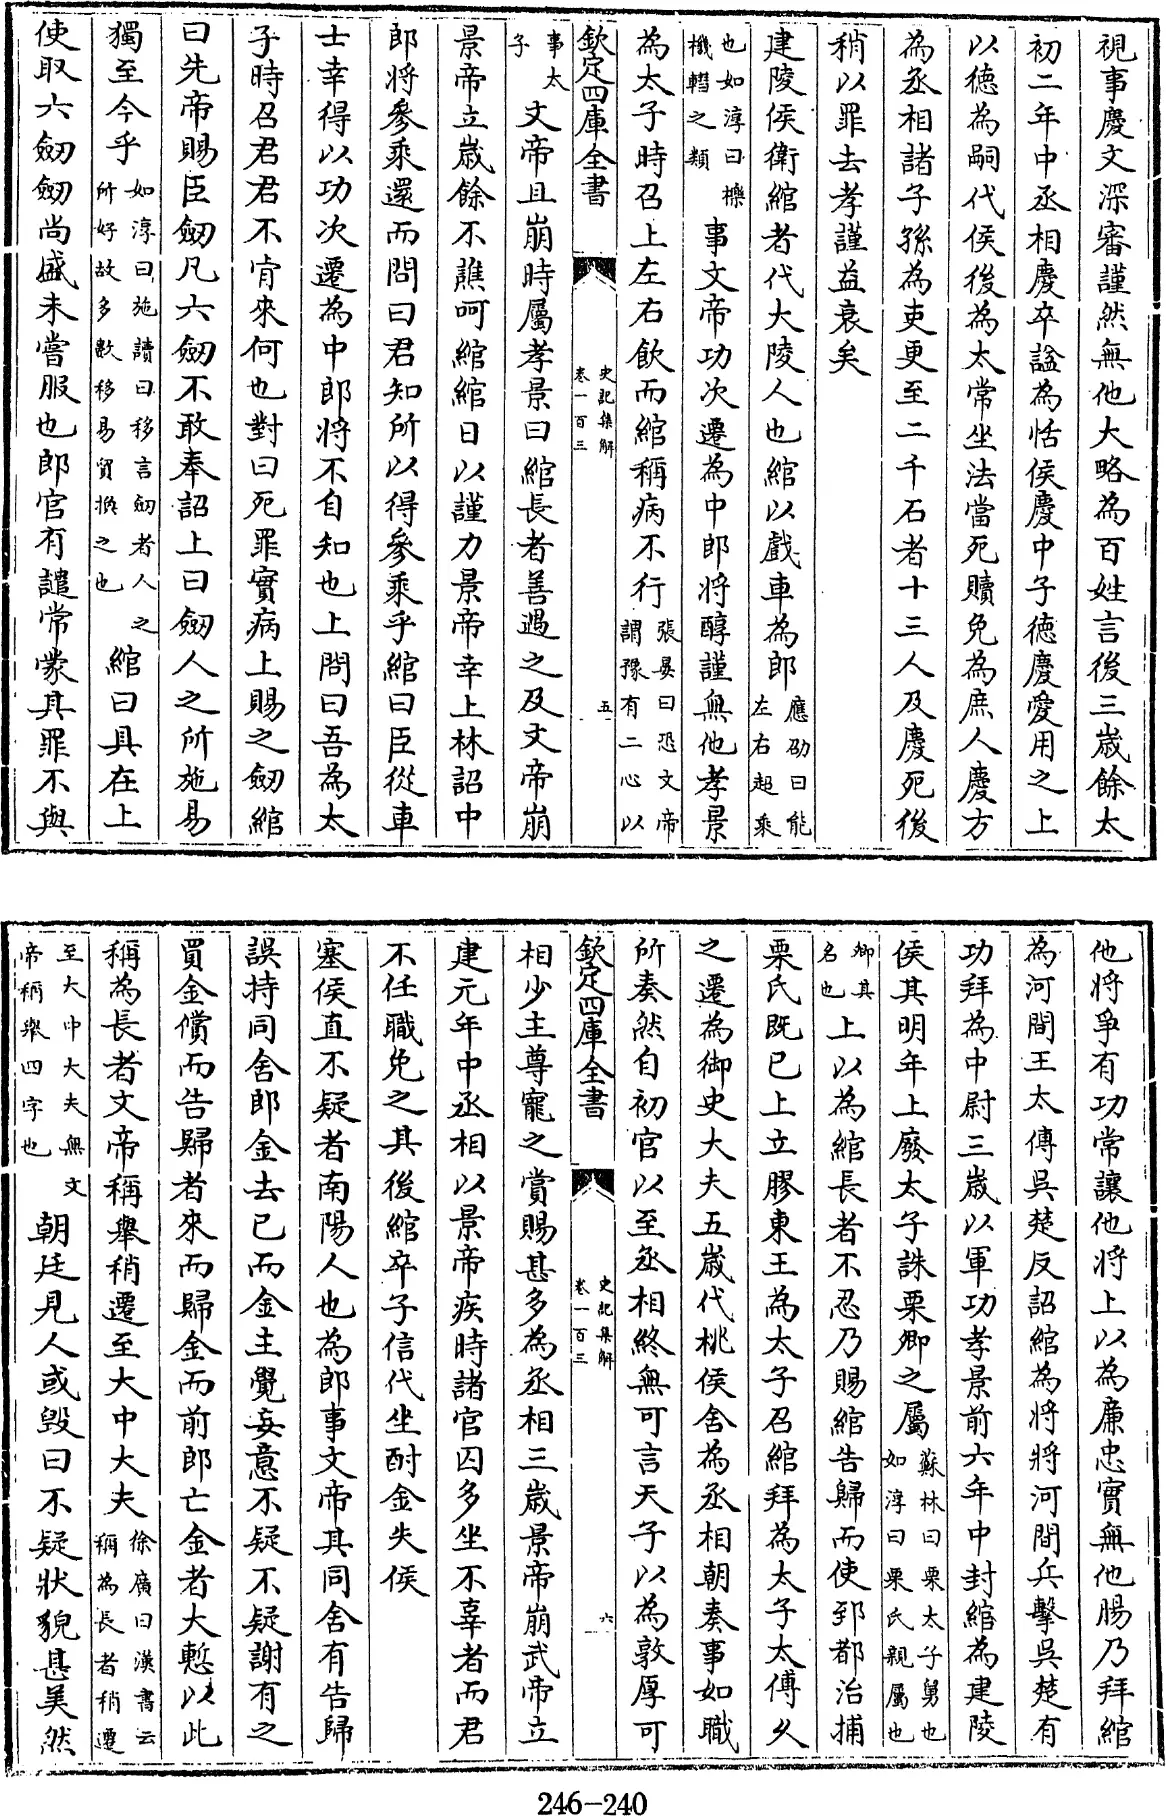 視事慶文深審謹然無他大略為百姓言後三歲餘太
初二年中丞相慶卒諡為恬侯慶中子德慶愛用之上
以德為嗣代侯後為太常坐法當死贖免為庶人慶方
為丞相諸子孫為吏更至二千石者十三人及慶死後
稍以罪去孝謹益衰矣
建陵侯衛綰者代大陵人也綰以戲車為郎應劭曰能左右超乘
也如淳曰櫟機轊之類事文帝功次遷為中郎將醇謹無他孝景
為太子時召上左右飲而綰稱病不行張晏曰恐文帝謂豫有二心以
欽定四庫全書 史記集解 卷一百三 五
事太子文帝且崩時屬孝景曰綰長者善遇之及文帝崩
景帝立歲餘不譙呵綰綰日以謹力景帝幸上林詔中
郎將參乘還而問曰君知所以得參乘乎綰曰臣從車
士幸得以功次遷為中郎將不自知也上問曰吾為太
子時召君君不肯來何也對曰死罪實病上賜之劒綰
曰先帝賜臣劒凡六劒不敢奉詔上曰劒人之所施易
獨至今乎如淳曰施讀曰移言劒者人之所好故多數移易貿換之也綰曰具在上
使取六劒劒尚盛未嘗服也郎官有譴常蒙其罪不與
他將爭有功常讓他將上以為廉忠實無他腸乃拜綰
為河間王太傅吳楚反詔綰為將將河間兵擊吳楚有
功拜為中尉三歲以軍功孝景前六年中封綰為建陵
侯其明年上廢太子誅栗卿之屬蘇林曰栗太子舅也如淳曰栗氏親屬也
卿其名也上以為綰長者不忍乃賜綰告歸而使郅都治捕
栗氏既已上立膠東王為太子召綰拜為太子太傅久
之遷為御史大夫五歲代桃侯舍為丞相朝奏事如職
所奏然自初官以至丞相終無可言天子以為敦厚可
欽定四庫全書 史記集解 卷一百三 六
相少主尊寵之賞賜甚多為丞相三歲景帝崩武帝立
建元年中丞相以景帝疾時諸官囚多坐不辜者而君
不任職免之其後綰卒子信代坐酎金失侯
塞侯直不疑者南陽人也為郎事文帝其同舍有告歸
誤持同舍郎金去已而金主覺妄意不疑不疑謝有之
買金償而告歸者來而歸金而前郎亡金者大慙以此
稱為長者文帝稱舉稍遷至大中大夫徐廣曰漢書云稱為長者稍遷
至大中大夫無文帝稱舉四字也朝廷見人或毀曰不疑狀貌甚美然
246-240